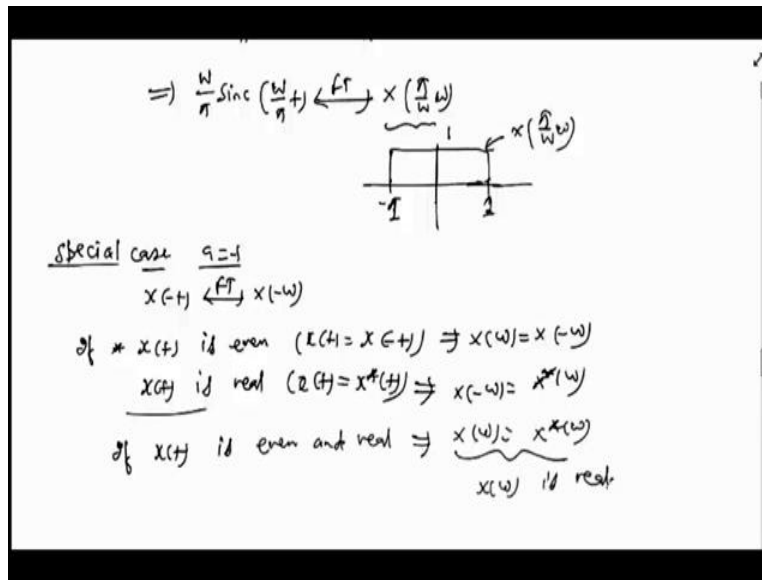 ⇒ W/π sinc (W/π t) ⟷FT X(π/W ω)
1 X(π/W ω)
-1 1
special case a=-1
x(-t) ⟷FT X(-ω)
If x(t) is even (x(t) = x(-t)) ⇒ X(ω) = X(-ω)
x(t) is real (x(t) = x*(t)) ⇒ X(-ω) = X*(ω)
If x(t) is even and real ⇒ X(ω) = X*(ω)
X(ω) is real.